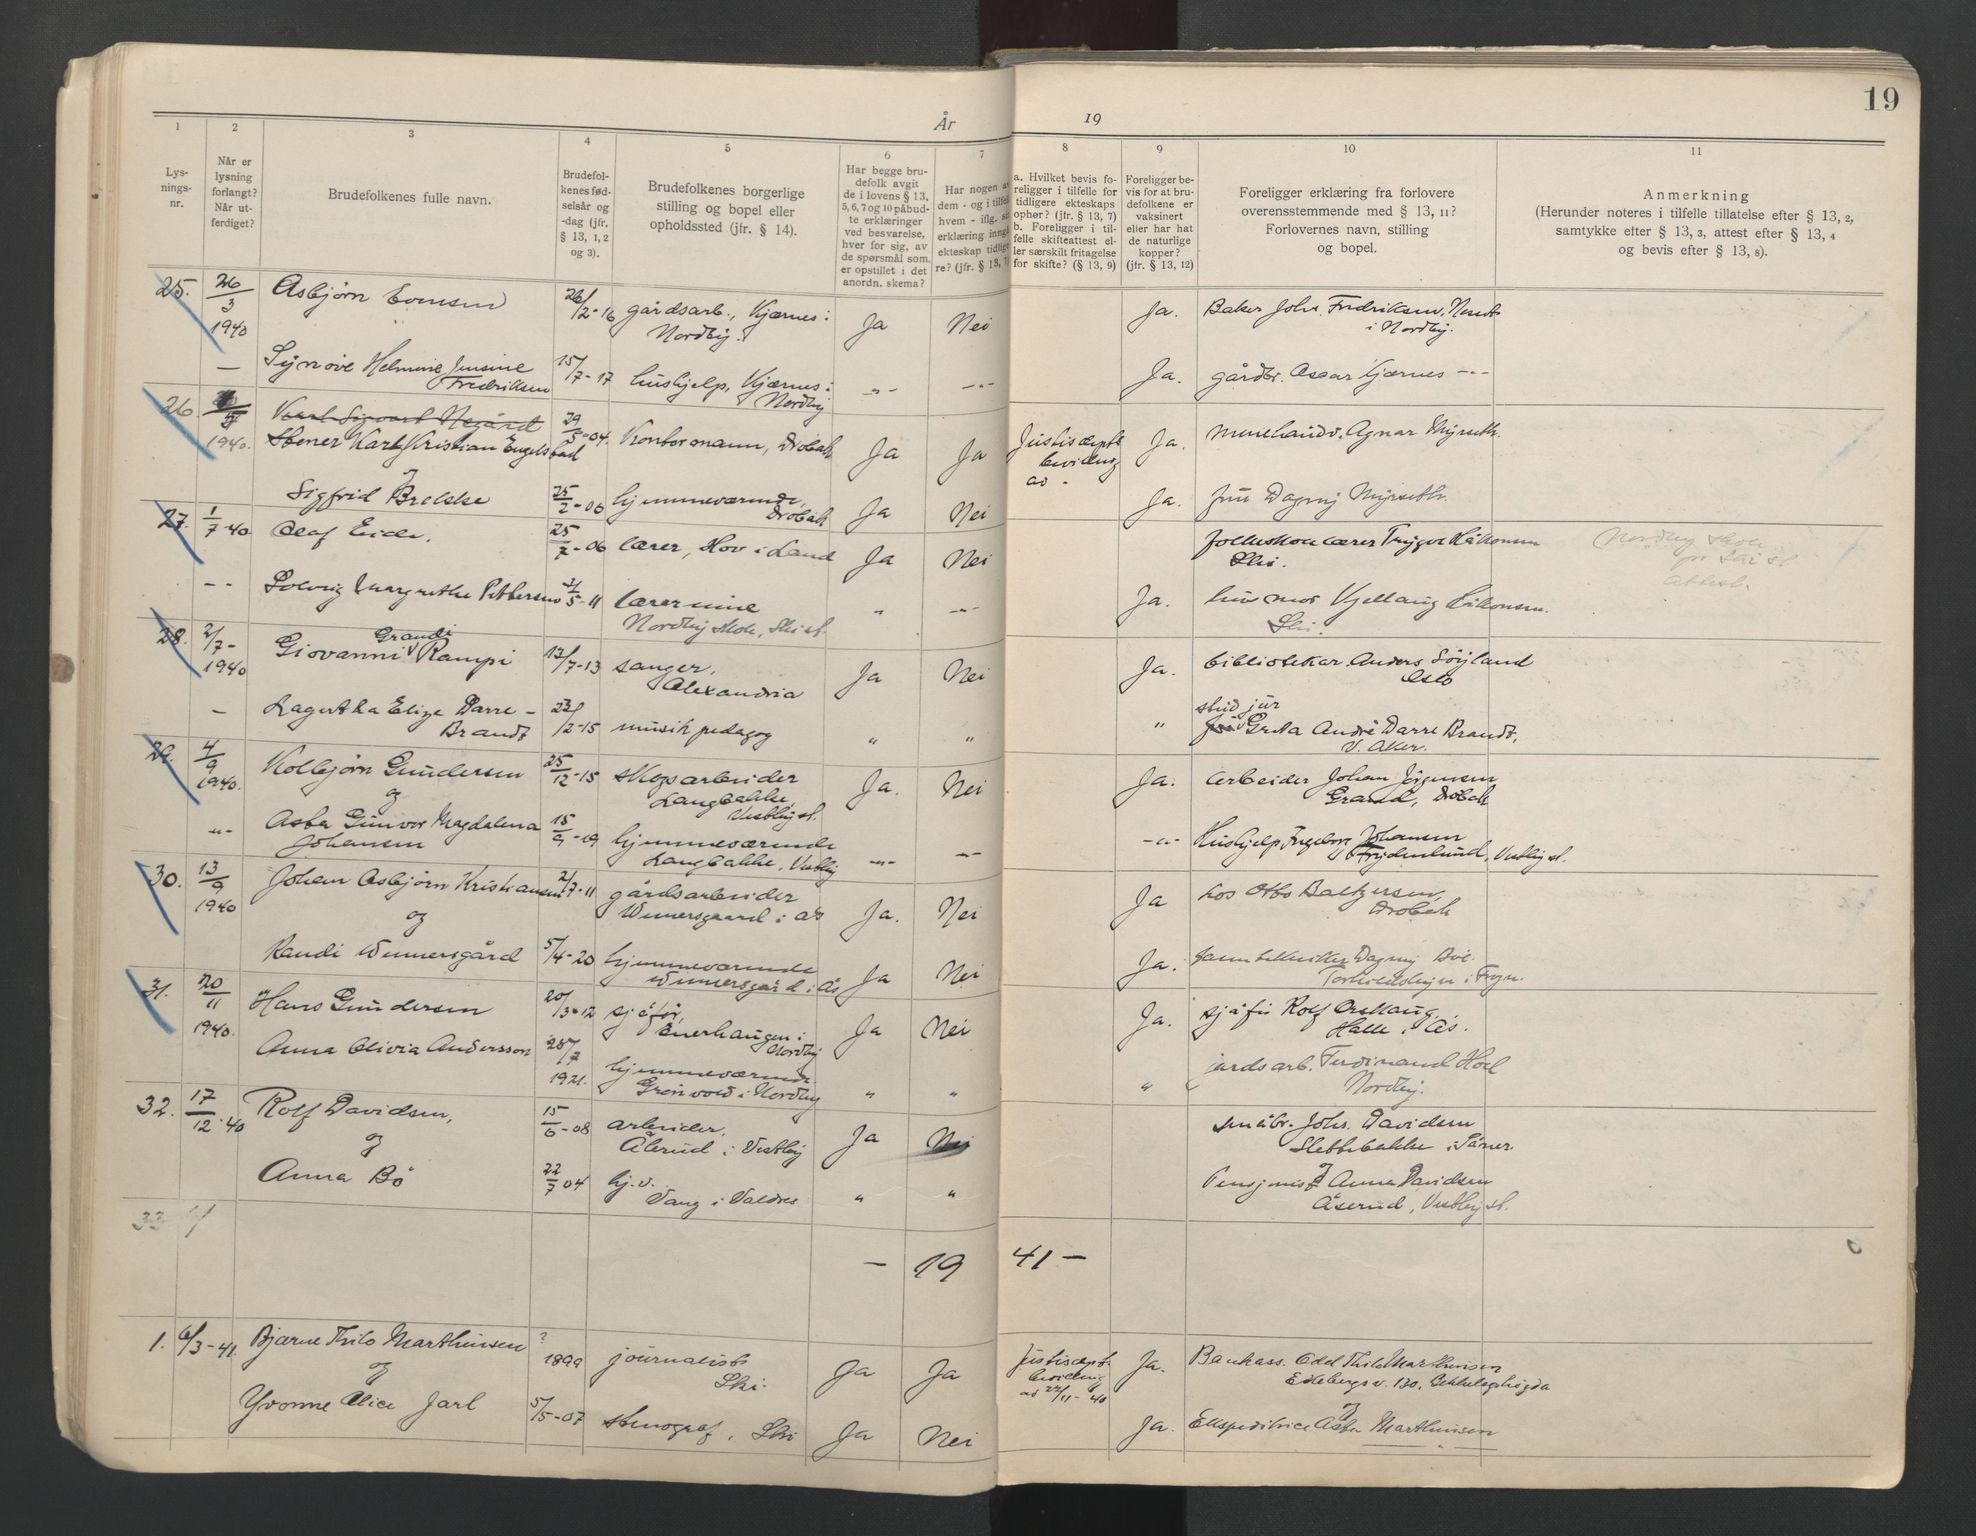 19
År 19
1 2 3 4 5 6 7 8 9 10 11
Lys-
nings-
nr.
Når er
lysning
forlangt?
Når ut-
ferdiget?
Brudefolkenes fulle navn.
Brudefol-
kenes fød-
selsår og
-dag (jfr.
§ 13, 1, 2
og 3).
Brudefolkenes borgerlige
stilling og bopel eller
opholdssted (jfr. § 14).
Har begge bru-
defolk avgit
de i lovens § 13,
5, 6, 7 og 10 påbud-
te erklæringer
ved besvarelse,
hver for sig, av
de spørsmål som
er opstillet i det
anordn. skema?
Har nogen av
dem - og i tilfel
hvem - iflg. si
erklæring inngå
ekteskap tidlige
re? (jfr. § 13, 7
a. Hvilket bevis fo-
religger i tilfelle for
tidligere ekteskaps
ophør? (jfr. § 13, 7)
b. Foreligger i til-
felle skifteattest el-
ler særskilt fritagelse
for skifte? (§ 13, 9)
Foreligger be-
vis for at bru-
defolkene er
vaksinert
eller har hat
de naturlige
kopper?
(jfr. § 13, 12)
Foreligger erklæring fra forlovere
overensstemmende med § 13, 11?
Forlovernes navn, stilling
og bopel.
Anmerkning
(Herunder noteres i tilfelle tillatelse efter § 13, 2,
samtykke efter § 13, 3, attest efter § 13, 4
og bevis efter § 13, 8).
25. 26/3 1940 Asbjørn Evensen 26/2-16 gårdsarb., Kjærnes i Nordby. Ja Nei Ja. Baker Johs. Fredriksen,
i Nordby.
— Synøve Helmine Jensine Fredriksen 15/7-17 hushjelp, Kjærnes i Nordby -"- -"- Ja. gårdbr. Oscar Kjærnes -"-
26 1940. Stener Karl Kristian Engelstad 29/5-04. Kontormann, Drøbak Ja Ja Justisdepts bevilling av - Ja. Agnar Myrseth.
og
Sigfrid Brekke 25/2-06 hjemmeværende, Drøbak Ja Nei Ja. fru Dagny Myrseth.
27. 1/7-40 Olaf Eide. 25/7-06 lærer, Hov i Land Ja Nei folkeskolelærer Trygve Håkonsen
Ski.
Nordby skole
pr Ski st.
Attest.
-- Solveig Margrethe Pettersen 2/5-11 lærerinne
Nordby skole, Ski st. " -"- Ja. husmor Håkonsen.
Ski.
28. 2/7-1940 Giovanni Grandi Rampi 12/7-13 sanger,
Alexandria Ja Nei Ja. bibliotekar Anders Søyland
Oslo
— Lagertha Elize Darre-
Brandt 23/2-15 musikpedagog " " " stud jur
Greta André Darre Brandt,
V. Aker.
29. 4/9 1940. Kolbjørn Gundersen 25/12-15 skogsarbeider
Langbakke,
Vestby st. Ja. Nei Ja. arbeider Johan Jørgensen
Grand, Drøbak
og
-"- Asta Gunvor Magdalena
Johansen 15/9-19 hjemmeværende
Langbakke, Vestby -"- -"- -"- Hushjelp Ingeborg Johansen
Frydenlund, Vestby st.
30. 13/9 1940 Johan Asbjørn Kristiansen 2/7-11 gårdsarbeider
Wennersgaard i Ås Ja. Nei Ja hos Otto Baltzersen,
Drøbak
og
Randi Wennersgård 5/4-20 hjemmeværende
Wennersgård i Ås Ja Nei Ja. Dagny Bøe.
i Frogn.
31. 20/11 1940. Hans Gundersen 20/3-12 sjåfør,
Enerhaugen i
Nordby Ja Nei Ja. sjåfør Rolf Orshaug,
Halle i Ås.
Anna Olivia Andersson 28/7 1921. hjemmeværende
Grønvold i Nordby " " " jordsarb. Ferdinand Hoel
Nordby.
32. 17/12-40 Rolf Davidsen, 15/6-08 arbeider,
Åkrud i Vestby Ja Nei småbr. Johs. Davidsen
Slettebakke i Såner.
og og
Anna Bø 22/7 04 hj.v.
Vang i Valdres " " Pensjonist Anna Davidsen
Åserud, Vestby st.
33
— 19 41 —
1. 6/3-41. Bjarne Thilo Marthinsen ? 1899 journalist
Ski. Ja Ja Justisdept.
bevilling
av 22/11-40 Ja. Bankass. Odd Thilo Marthinsen
Ekebergv. 130, Bekkelagshøgda
og og
Yvonne Alice Jarl 5/5-07 stenograf, Ski Ja Nei Ja. Ekspeditrice Asta Marthinsen